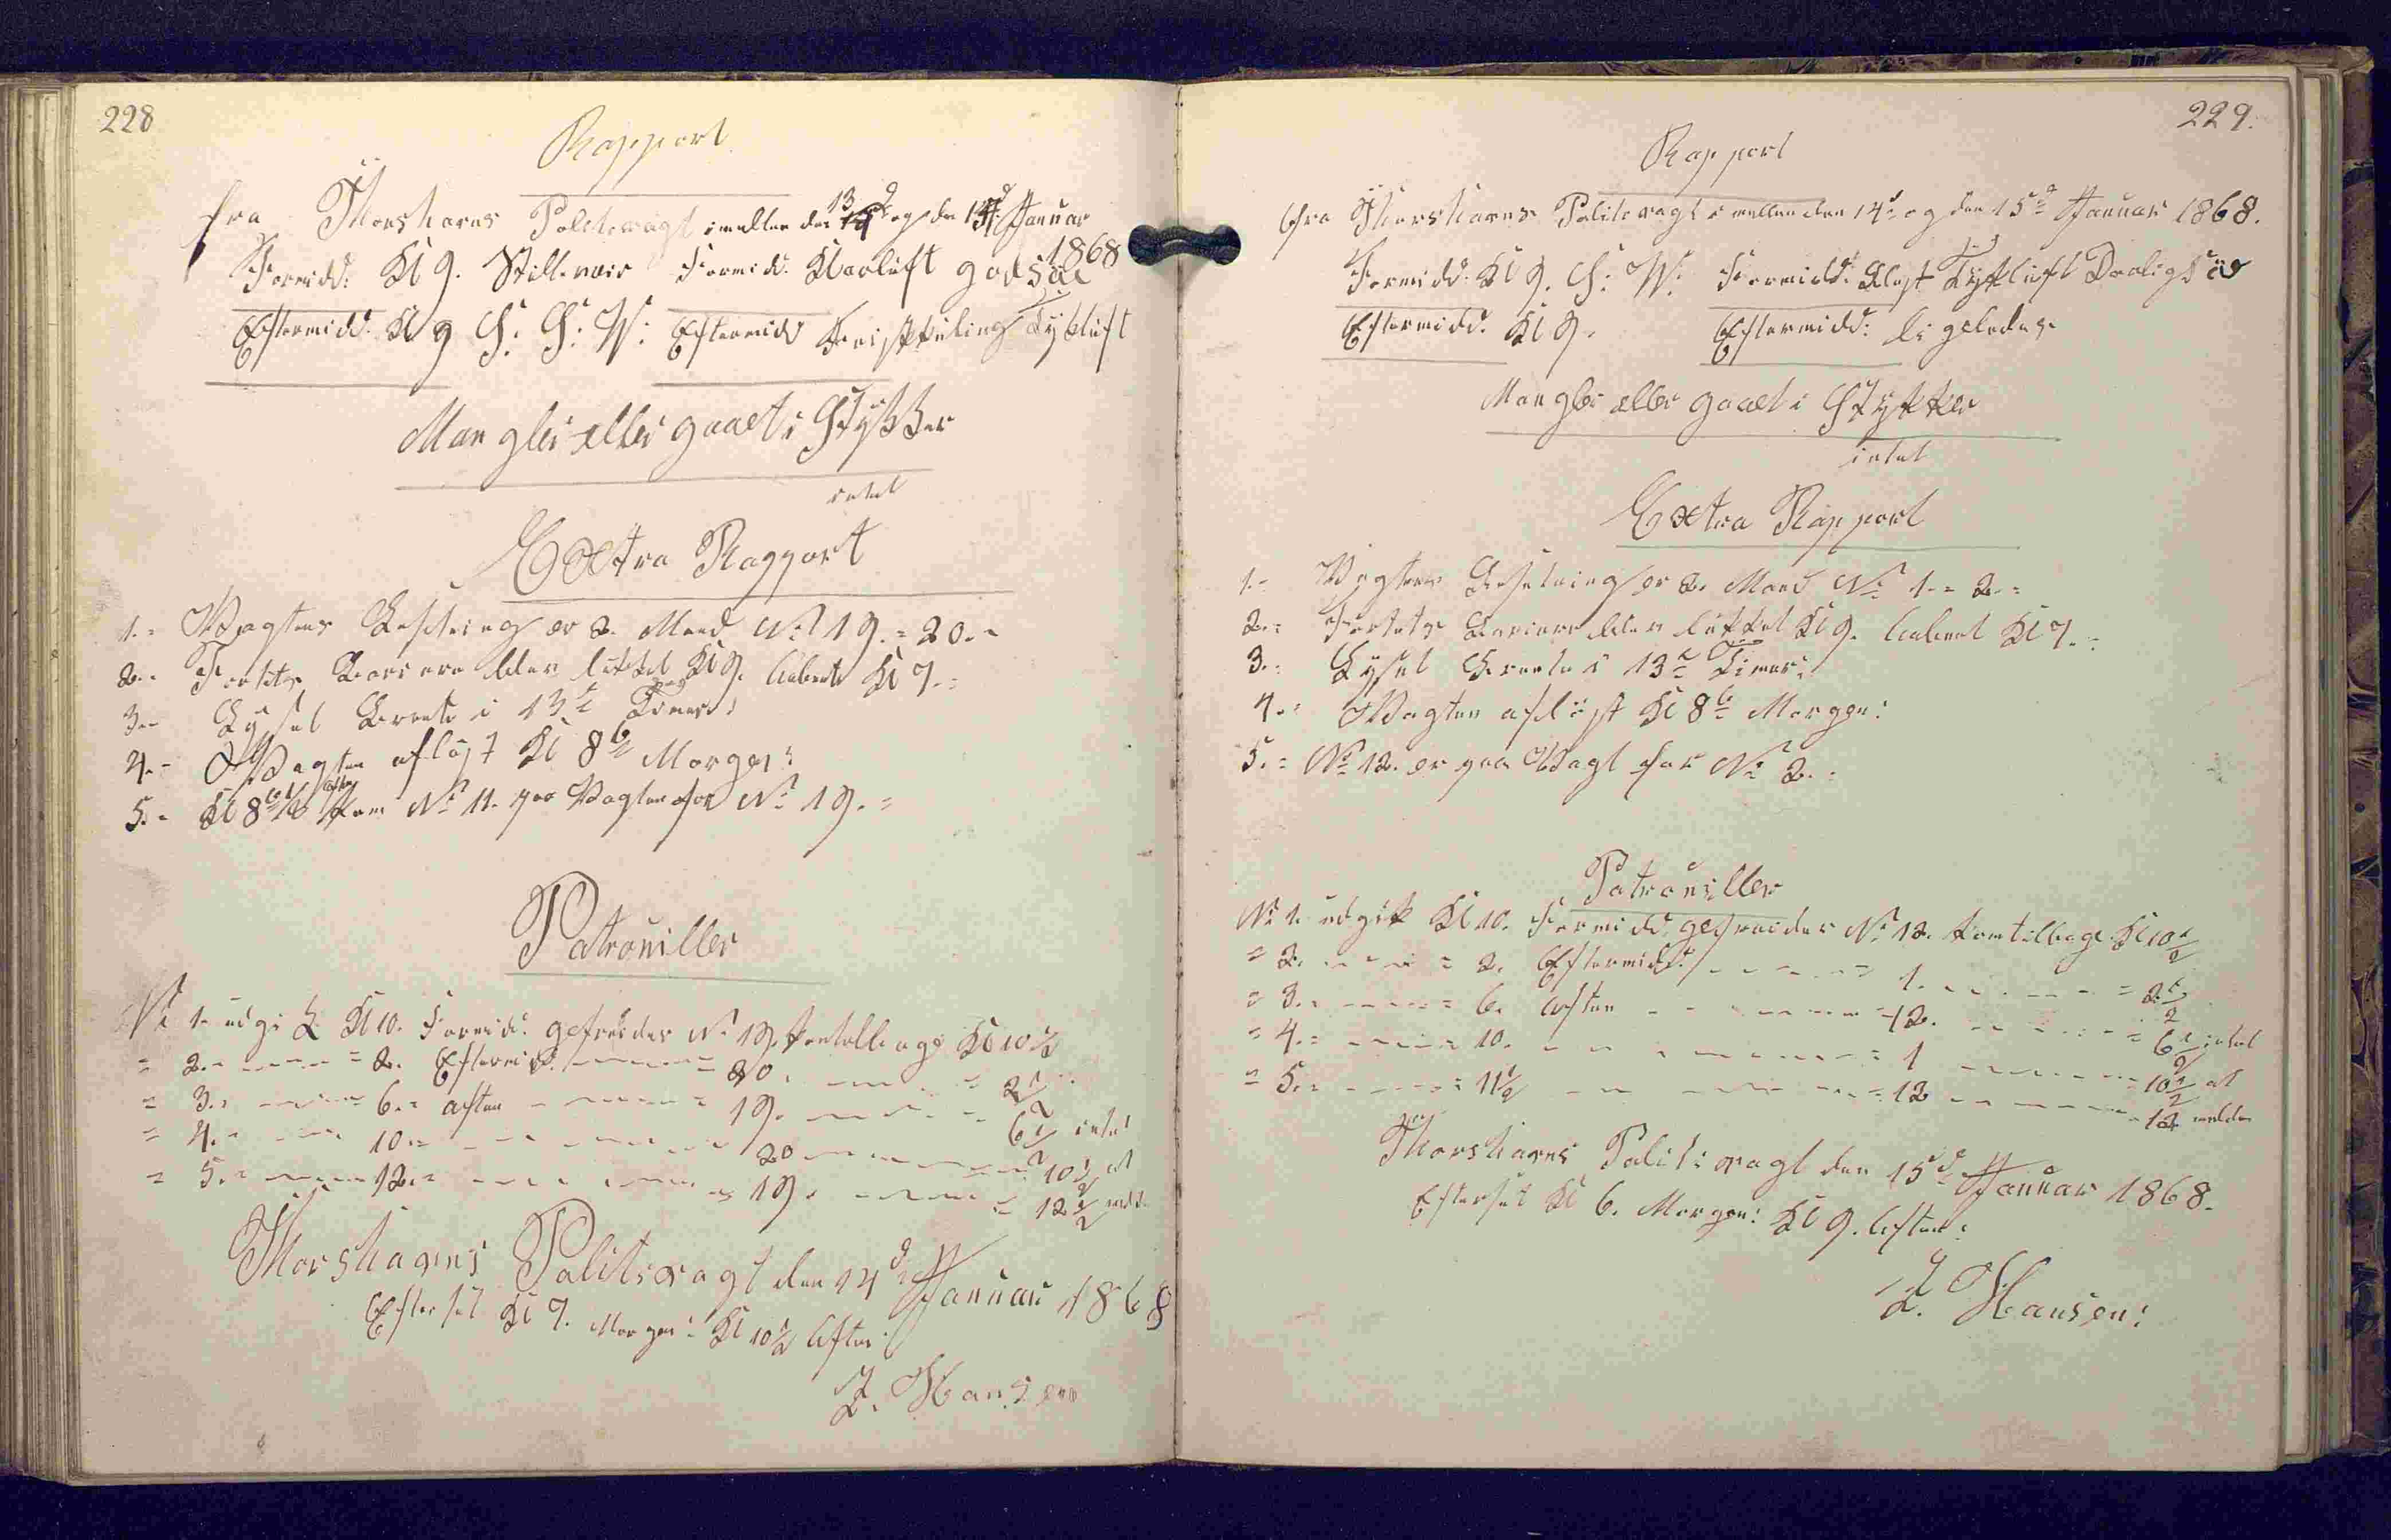 228
Rapport
fra Thorshavns Politievagt imellem den 13 og den 14d Januar
1868
Formidd: Kl 9. Stille veir Formidd. Klarluft godt
Eftermidd. Kl 9 S: S: W: Eftermidd Frisk kuling Tykluft
Mangler eller gaaet i Stykker
intet
Extra Rapport
1.= Vagtens Besetning er 2. Mand No 19.= 20.=
2.= Fortets Barierer blev lukket Kl 9. aabnet Kl 7.=
3.= Lyset brente i 13½ Timer:
4.= Vagten afløst Kl 8 Morgen:
5.= Kl 8 kom No 11. paa Vagten for No 19.=
Patrouiller
No 1. udgik Kl 10. Formidd. gefreider No 19. kom tilbage Kl 10½
= 2.= = 2. Eftermidd. = 20. = 2½
= 3.= = 6.= aften = 19. = 6½ intet
= 4.= 10.= 20 10½ at
= 5.= 12.= = 19. = 12½ melde
Thorshavns Politivagt den 14d Januar 1868
Efterset Kl 7. Morgen: Kl 10½ Aften:
Z. Hansen
229.
Rapport
fra Thorshavns Politivagt imellem den 14d og den 15d Januar 1868.
Formidd: Kl 9. S: W: Formidd: Tykluft Daarligt
Eftermidd. Kl 9. Eftermidd: ligeledes
Mangler eller gaaet i Stykker
intet
Extra Rapport
1.= Vagtens Besetning er 2. Mand No 1.= 2.=
2.= Fortets Barierer blev lukket Kl 9. aabnet Kl 7.=
3.= Lyset brente i 13½ Timer:
4.= Vagten afløst Kl 8 Morgen:
5.= No 12. er paa Vagt for No 2.=
Patrouiller
No 1. udgik Kl 10. Formidd. gefreider No 12. kom tilbage Kl 10½
= 2. = 2. Eftermidd: = 1. = 2½
= 3.= = 6. Aften = 12. = 6½ intet
= 4.= 10. = 1 10½ at
= 5.= = 11½ = 12 = 12 melde
Thorshavns Politivagt den 15d Januar 1868.
Efterset Kl 6. Morgen: Kl 9. Aften:
Z. Hansen: